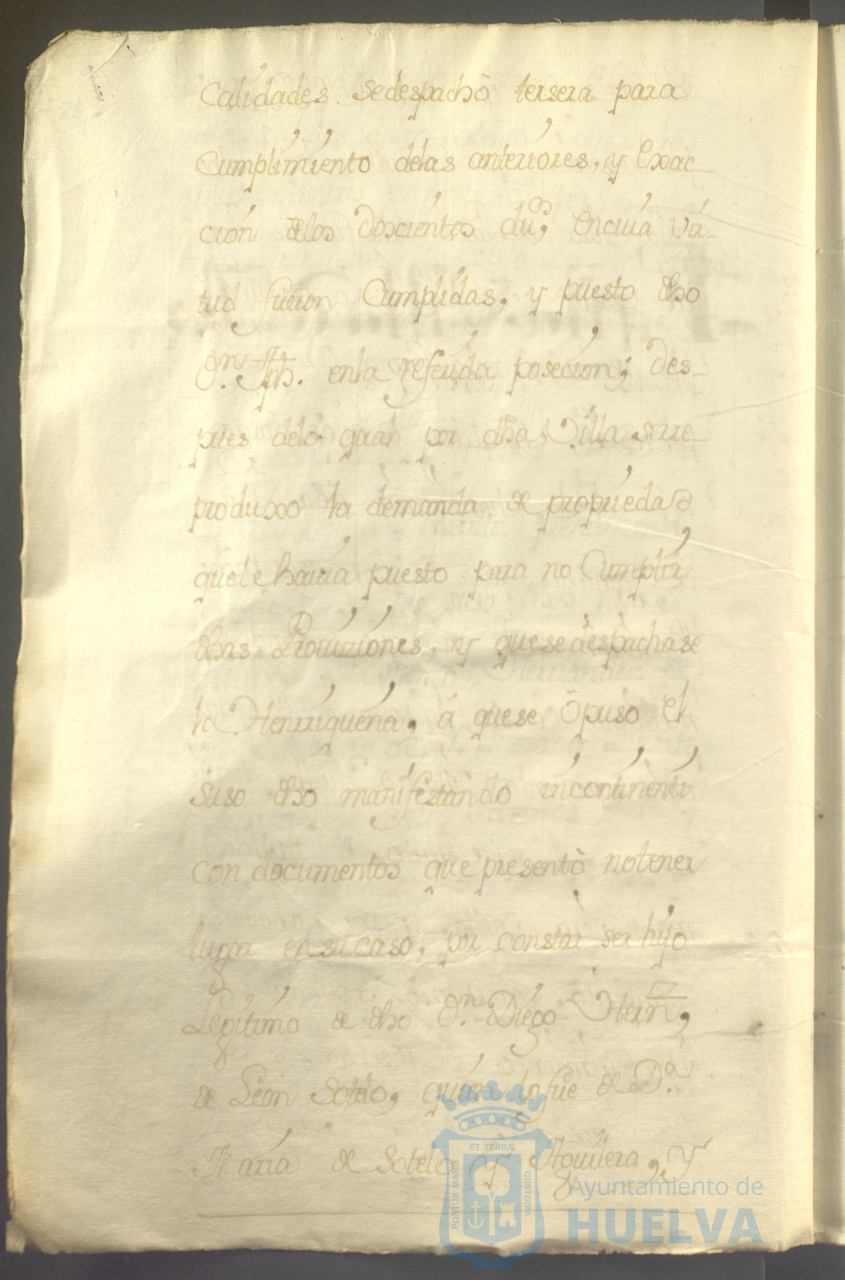 Calidades. sedespachò tersera para
Cumplimiento delas anteriores, y Exac-
cion delos Doscientos du.os, encuia vir-
tud fueron Cumplidas, y puesto dho
D.n Jph. enla referida posecion; Des-
pues delo qual por dha Villa sere-
produxo la demanda de propriedad
quele havia puesto para no Cumplir
dhas Proviziones, y quesedespachase
la Henrriqueña, á quese opuso el
suso dho manifestando incontinenti
con documentos que presentò notener
lugar en su caso, por constar ser hijo
Legitimo de dho D.n Diego Hern.z,
de Leon Sotelo, quien lo fue de D.a
Maria de Sotelo y Aguilera, y
ET TERRÆ
PORTUS MARIS
CUSTODIA
Ayuntamiento de
HUELVA